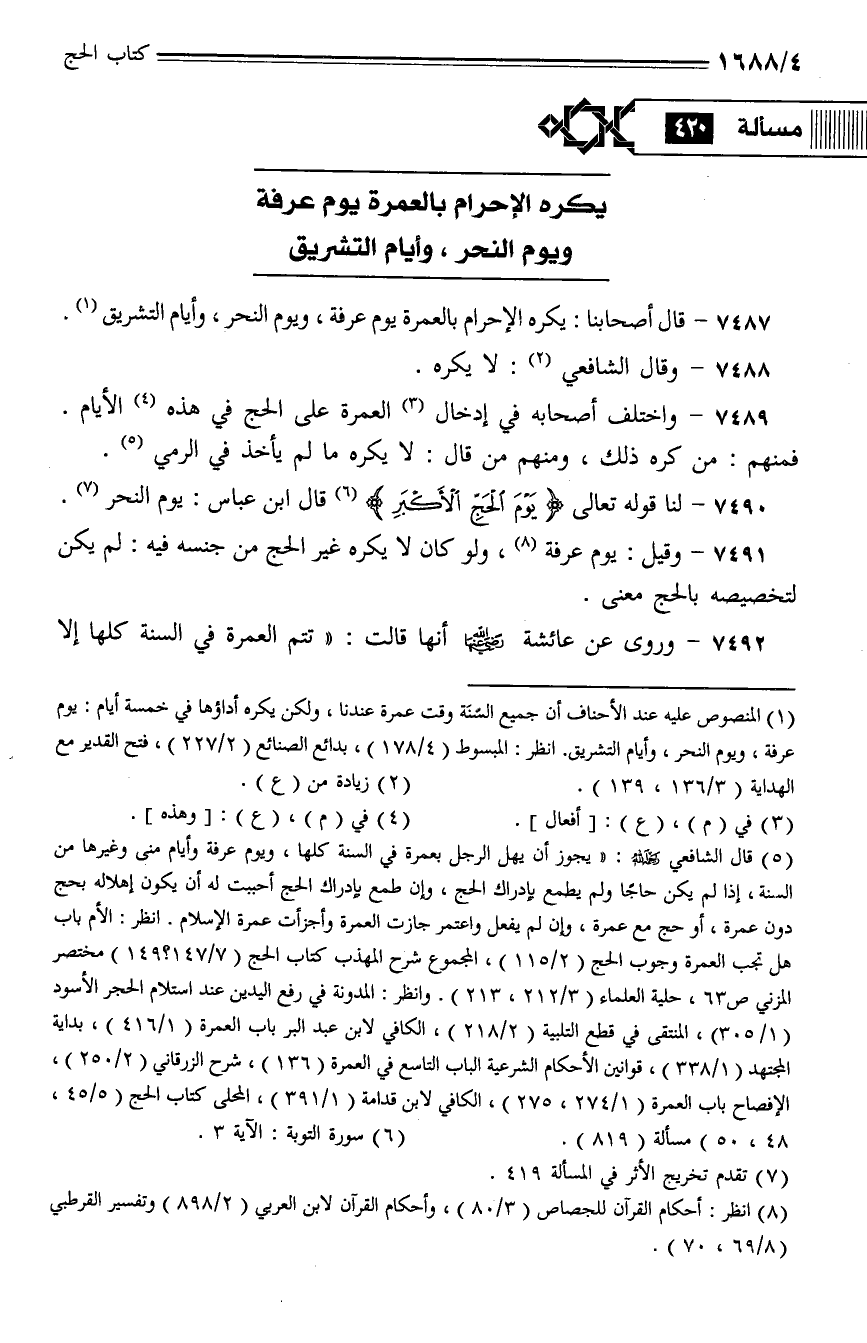 ١٦٨٨/٤ كتاب الحج
مسألة ٤٢٠
يكره الإحرام بالعمرة يوم عرفة
ويوم النحر ، وأيام التشريق
٧٤٨٧ - قال أصحابنا : يكره الإحرام بالعمرة يوم عرفة ، ويوم النحر ، وأيام التشريق (١) .
٧٤٨٨ - وقال الشافعي (٢) : لا يكره .
٧٤٨٩ - واختلف أصحابه في إدخال (٣) العمرة على الحج في هذه (٤) الأيام .
فمنهم : من كره ذلك ، ومنهم من قال : لا يكره ما لم يأخذ في الرمي (٥) .
٧٤٩٠ - لنا قوله تعالى ﴿ يَوْمَ ٱلْحَجِّ ٱلْأَكْبَرِ ﴾ (٦) قال ابن عباس : يوم النحر (٧) .
٧٤٩١ - وقيل : يوم عرفة (٨) ، ولو كان لا يكره غير الحج من جنسه فيه : لم يكن
لتخصيصه بالحج معنى .
٧٤٩٢ - وروى عن عائشة رضي الله عنها أنها قالت : « تتم العمرة في السنة كلها إلا
(١) المنصوص عليه عند الأحناف أن جميع السَّنَة وقت عمرة عندنا ، ولكن يكره أداؤها في خمسة أيام : يوم
عرفة ، ويوم النحر ، وأيام التشريق. انظر : المبسوط ( ١٧٨/٤ ) ، بدائع الصنائع ( ٢٢٧/٢ ) ، فتح القدير مع
الهداية ( ١٣٦/٣ ، ١٣٩ ) . (٢) زيادة من ( ع ) .
(٣) في ( م ) ، ( ع ) : [ أفعال ] . (٤) في ( م ) ، ( ع ) : [ وهذه ] .
(٥) قال الشافعي رحمه الله : « يجوز أن يهل الرجل بعمرة في السنة كلها ، ويوم عرفة وأيام منى وغيرها من
السنة ، إذا لم يكن حاجًا ولم يطمع بإدراك الحج ، وإن طمع بإدراك الحج أحببت له أن يكون إهلاله بحج
دون عمرة ، أو حج مع عمرة ، وإن لم يفعل واعتمر جازت العمرة وأجزأت عمرة الإسلام . انظر : الأم باب
هل تجب العمرة وجوب الحج ( ١١٥/٢ ) ، المجموع شرح المهذب كتاب الحج ( ١٤٧/٧؟١٤٩ ) مختصر
المزني ص٦٣ ، حلية العلماء ( ٢١٢/٣ ، ٢١٣ ) . وانظر : المدونة في رفع اليدين عند استلام الحجر الأسود
( ٣٠٥/١) ، المنتقى في قطع التلبية ( ٢١٨/٢ ) ، الكافي لابن عبد البر باب العمرة ( ٤١٦/١ ) ، بداية
المجتهد ( ٣٣٨/١ ) ، قوانين الأحكام الشرعية الباب التاسع في العمرة ( ١٣٦ ) ، شرح الزرقاني ( ٢٥٠/٢ ) ،
الإفصاح باب العمرة ( ٢٧٤/١ ، ٢٧٥ ) ، الكافي لابن قدامة ( ٣٩١/١ ) ، المحلى كتاب الحج ( ٤٥/٥ ،
٤٨ ، ٥٠ ) مسألة ( ٨١٩ ) . (٦) سورة التوبة : الآية ٣ .
(٧) تقدم تخريج الأثر في المسألة ٤١٩ .
(٨) انظر : أحكام القرآن للجصاص ( ٨٠/٣ ) ، وأحكام القرآن لابن العربي ( ٨٩٨/٢ ) وتفسير القرطبي
( ٦٩/٨ ، ٧٠ ) .